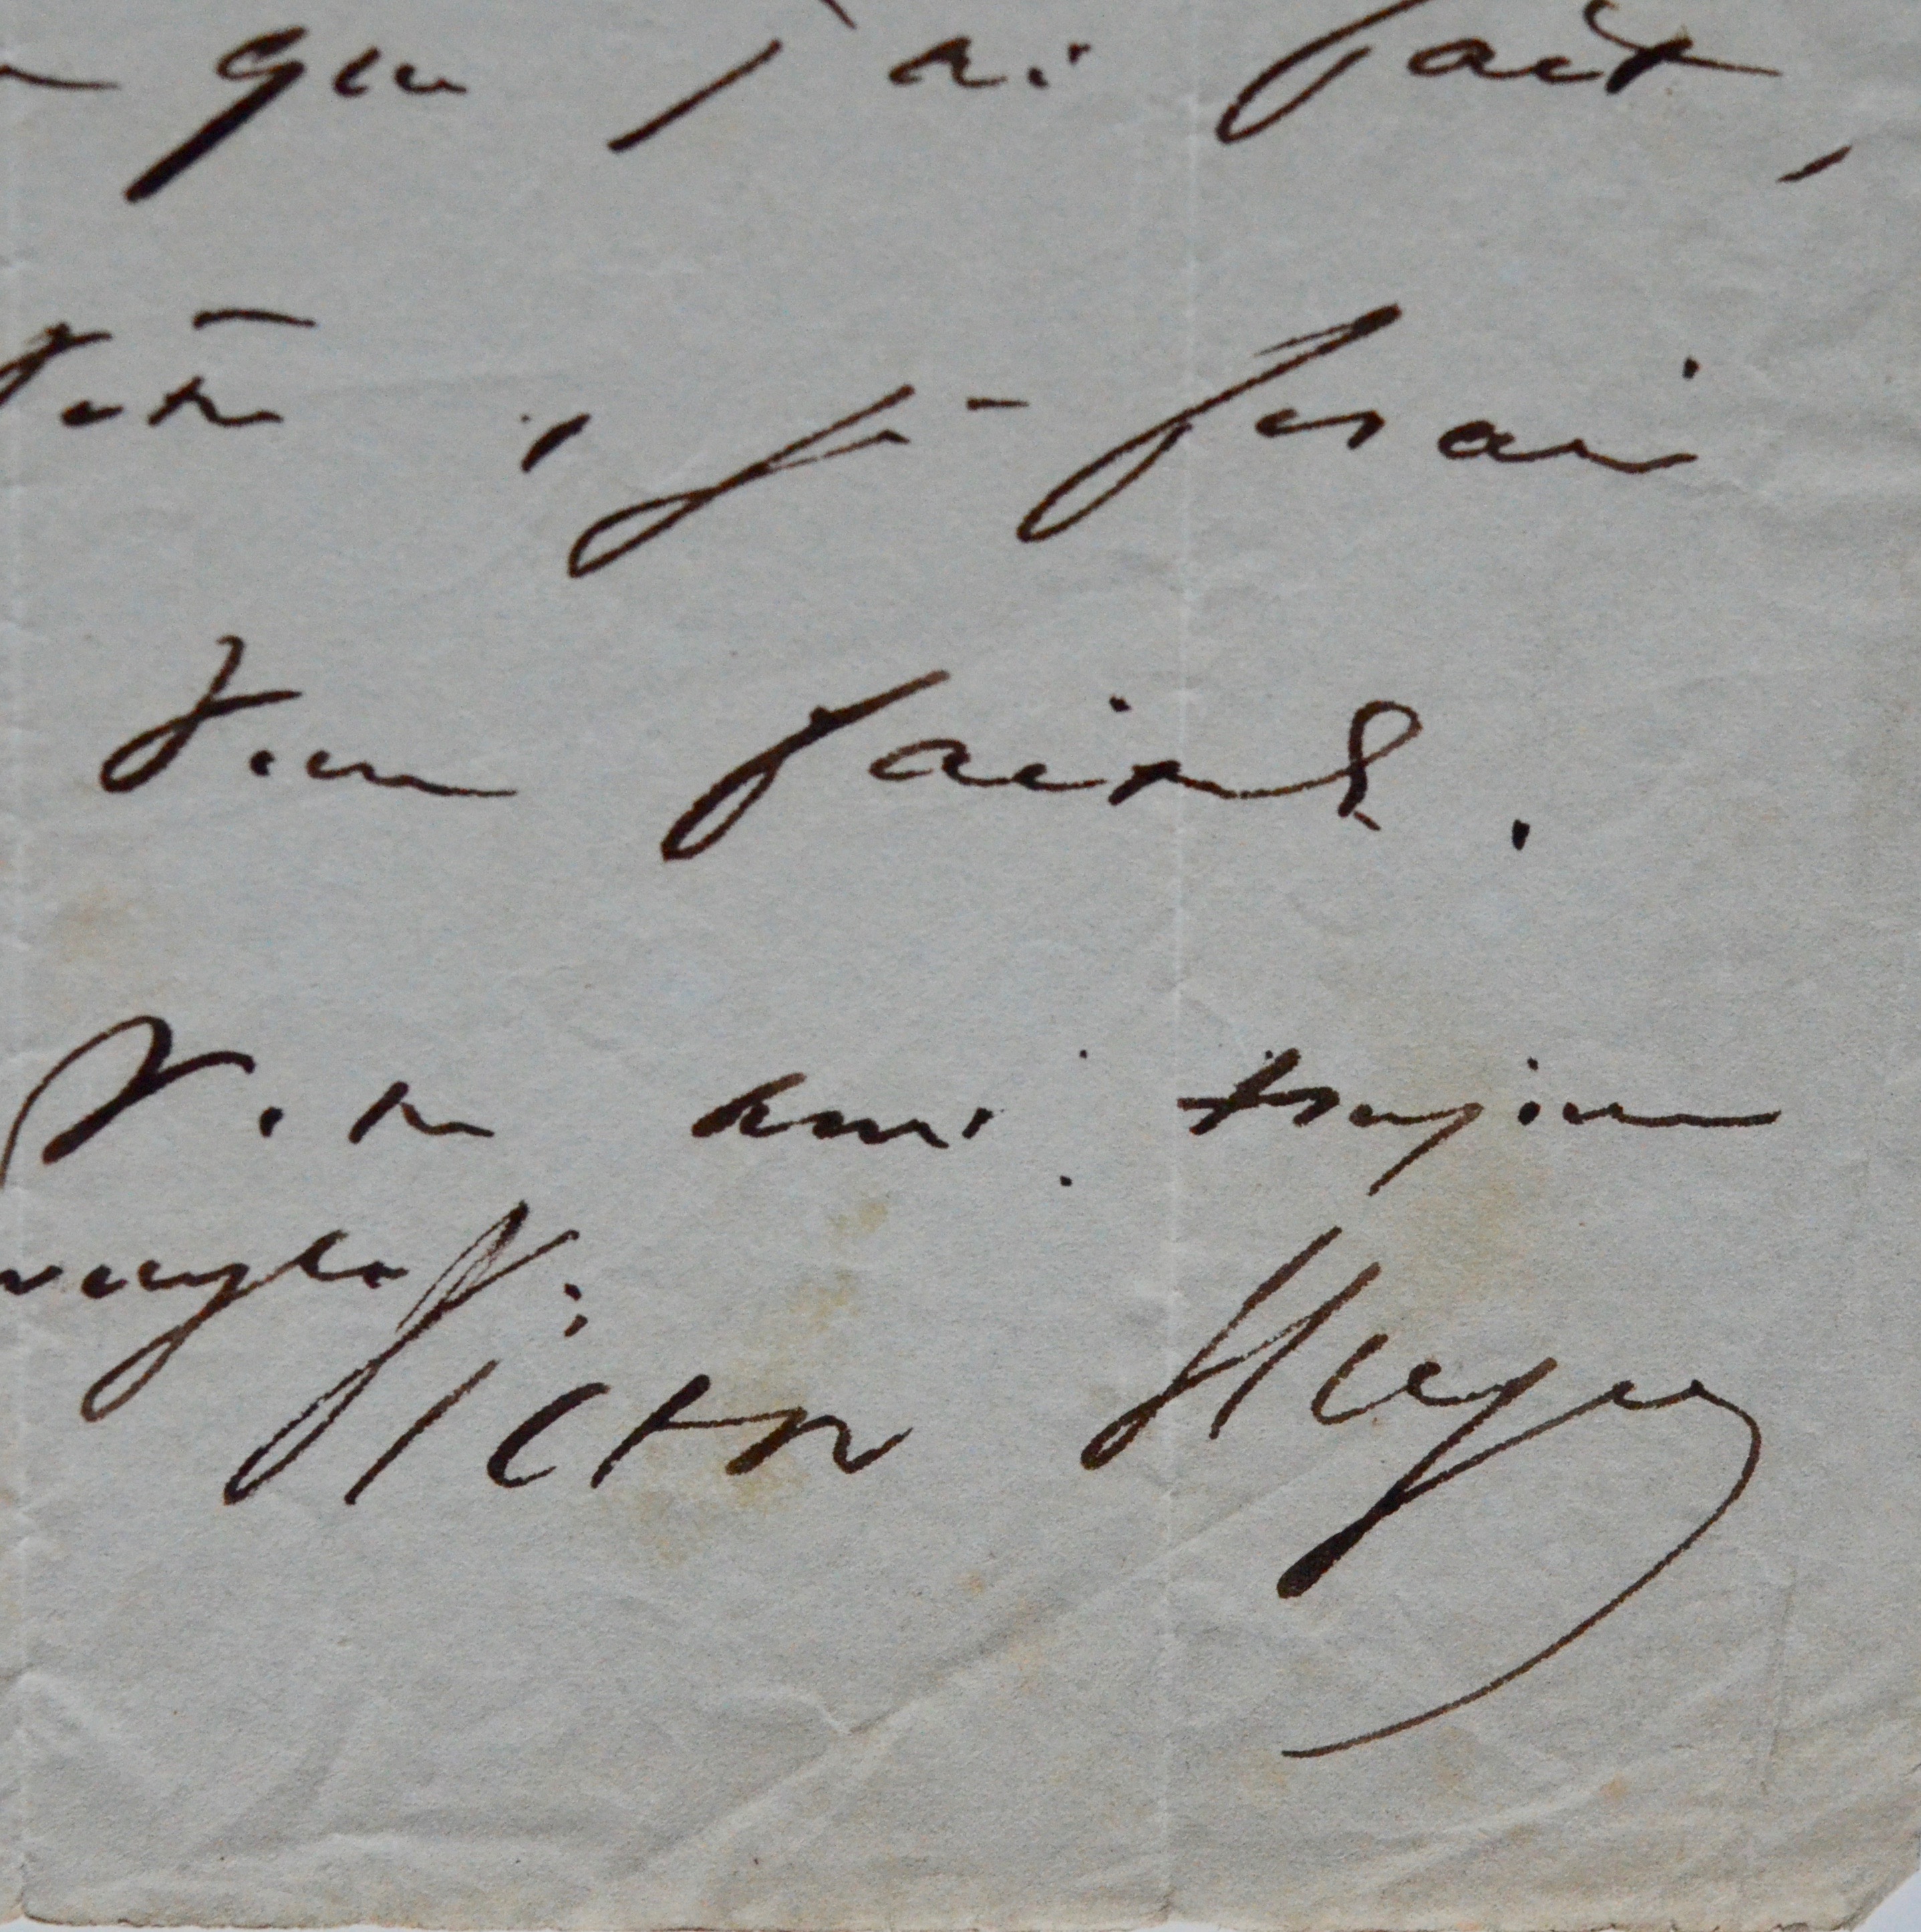 que j'ai fait,
, je ferai
vous faire.
Votre ami toujours
Victor Hugo